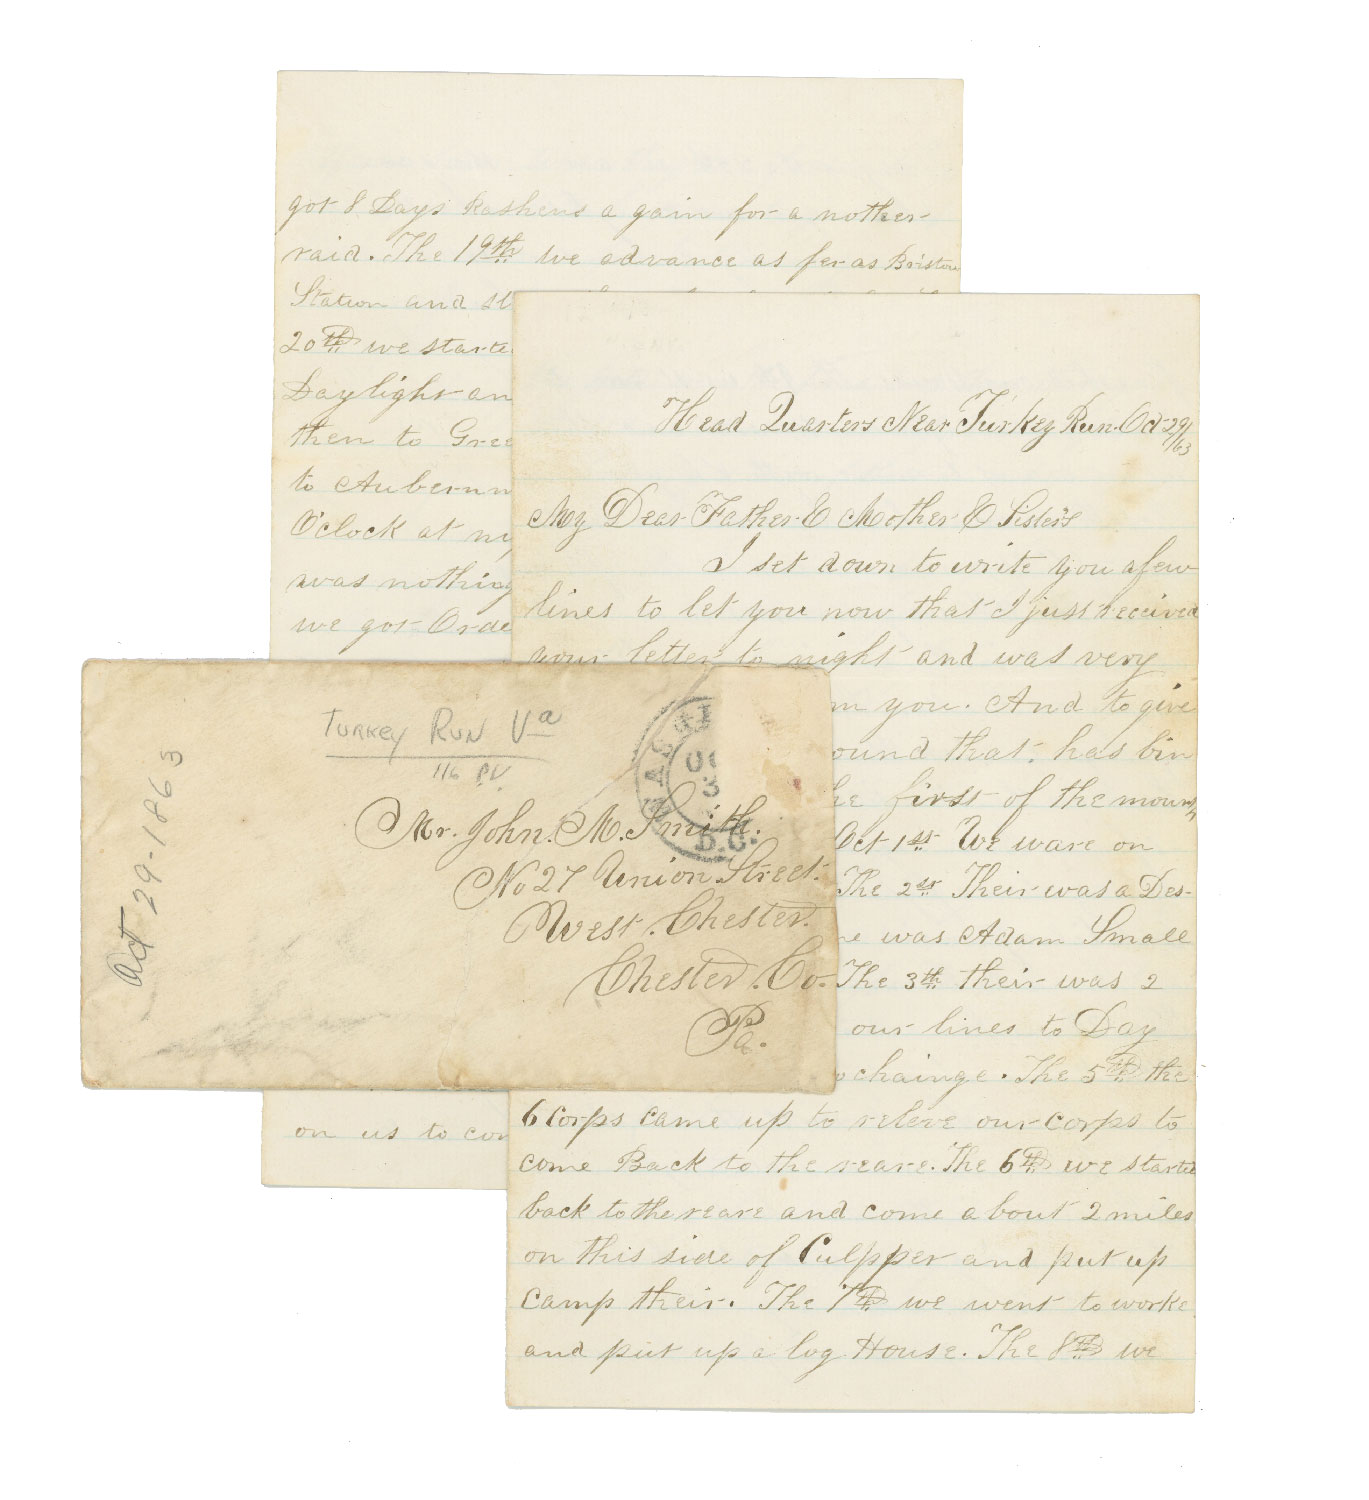 got 8 Days Rashens a gain for a nother
raid. The 19th we advance as fer as Bristow
Station and
20th we starte
Daylight an
then to Gree
to Aubernn
O'clock at
was nothing
we got Orde
on us to com
Head Quarters Near Turkey Run. Oct 29/63
My Dear Father & Mother & Sisters
I set down to write you a few
lines to let you now that I just received
your letter to night and was very
m you. And to give
ound that has bin
he first of the mounth
Oct 1st We ware on
The 2st Their was a Des-
me was Adam Small
The 3th their was 2
our lines to Day
o chainge. The 5th the
6 Corps came up to releve our corps to
come Back to the reare. The 6th we started
back to the reare and come a bout 2 miles
on this side of Culpper and put up
Camp their. The 7th we went to worke
and put up a log House. The 8th we
Turkey Run Va
116 PV
Oct 29-1863
WASH
OC
3
D.C.
Mr. John. M. Smith.
No 27 Union Street.
West. Chester.
Chester. Co.
Pa.